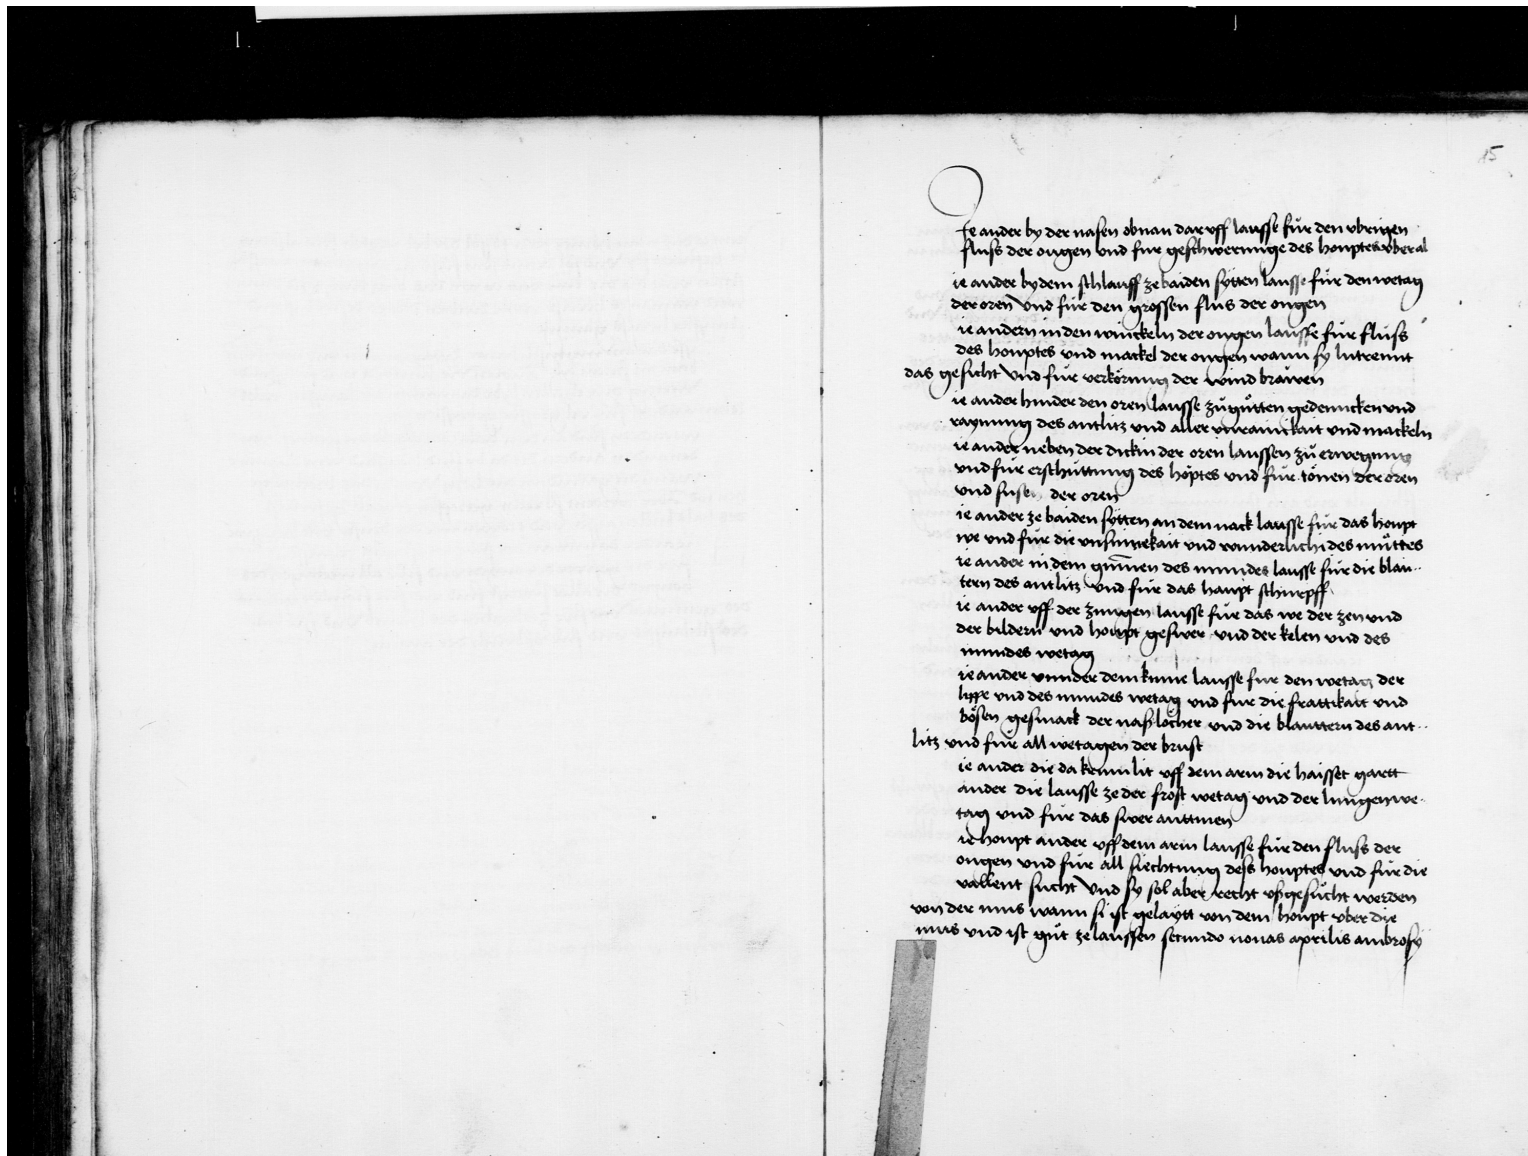 15
Die ander by der nasen obnan dar vff lausse für den vbrigen
fluss der ougen vnd fur geschwerunge des houptes vberal
ie ander by dem schlauff ze baiden sytten lausse für den wetag
der oren vnd für den grossen flus der ougen
ie andern in den winckeln der ougen lausse für fluss
des houptes vnd mackel der ougen wann sy lutrennt
das gesicht vnd für verkörung der wind brawen
ie ander hinder den oren lausse zu gütten gedenncken vnd
raynung des antlitz vnd aller vnrainickait vnd mackeln
ie ander neben der dickin der oren laussen zu erwegung
vnd für erschüttung des höptes vnd für tönen der oren
vnd susen der oren
ie ander ze baiden sytten an dem nack lausse für das houpt
we vnd für die vnsinnekait vnd wunderlichi des müttes
ie ander in dem gumen des mundes lausse für die blau
tern des antlitz vnd für das haupt schnepff
ie ander vff der zungen lausse für das we der zen vnd
der bildern vnd houpt geswer vnd der kelen vnd des
mundes wetag
ie ander vnnder dem kinne lausse für den wetag der
lippe vnd des mundes wetag vnd für die frattikait vnd
bösen gesmack der naßlöcher vnd die blauttern des ant
litz vnd für all wetagen der brust
ie ander die da lit vff dem arm die haisset
ander die lausse ze der frost wetag vnd der lungen we
tag vnd für das swer auttmen
ie houpt ander vff dem arm lausse für den fluss der
ougen vnd für all siechtung dess houptes vnd für die
vallent sucht vnd sy sol aber recht vßgesücht werden
von der mus wann si ist gelaytt von dem houpt vber die
mus vnd ist güt ze laussen secundo nonas aprilis ambrosy